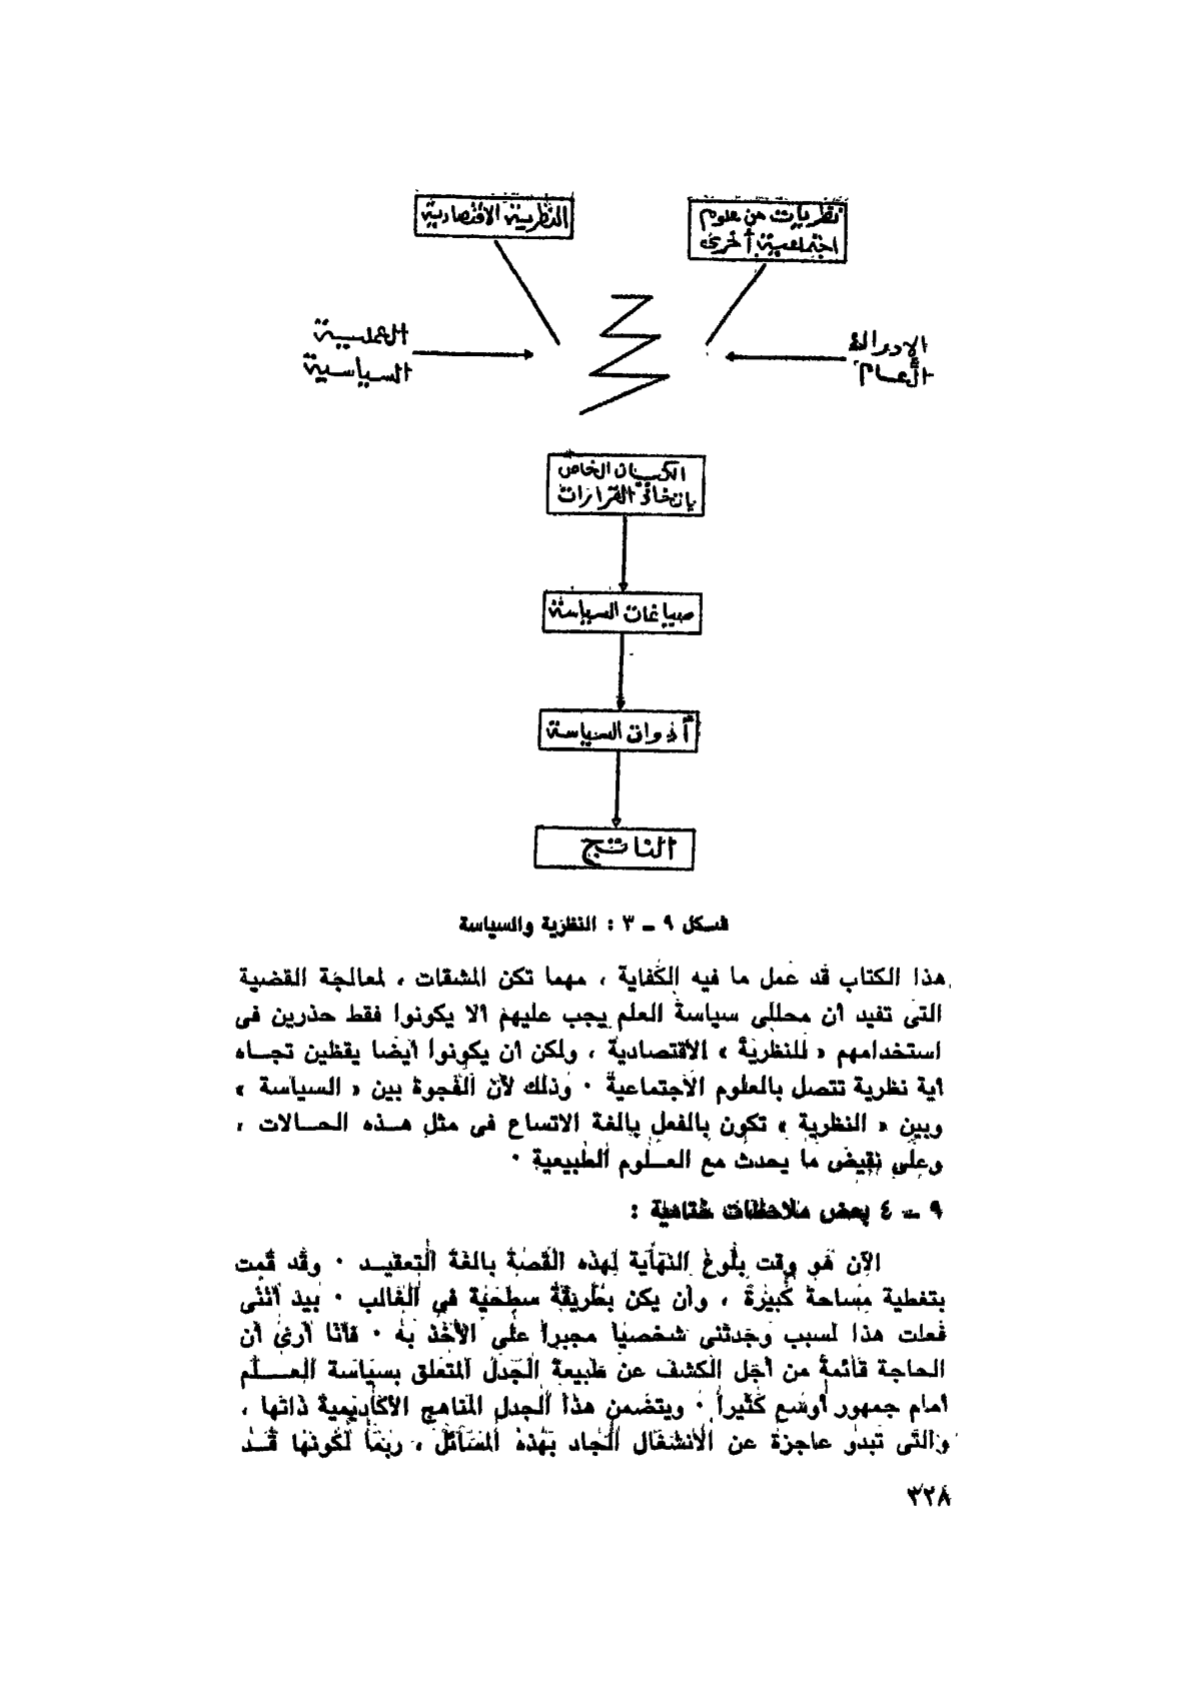 النظرية الاقتصادية
نظريات من علوم
اجتماعية أخرى
العملية
السياسية
الإدراك
العام
الكيان الخاص
باتخاذ القرارات
صياغات السياسة
أدوات السياسة
الناتج
شكل ٩ ــ ٣ : النظرية والسياسة
هذا الكتاب قد عمل ما فيه الكفاية ، مهما تكن المشقات ، لمعالجة القضية
التى تفيد أن محللى سياسة العلم يجب عليهم ألا يكونوا فقط حذرين فى
استخدامهم « للنظرية » الاقتصادية ، ولكن أن يكونوا أيضا يقظين تجـاه
أية نظرية تتصل بالعلوم الاجتماعية ٠ وذلك لأن الفجوة بين « السياسة »
وبين « النظرية » تكون بالفعل بالغة الاتساع فى مثل هـذه الحـالات ،
وعلى نقيض ما يحدث مع العـلوم الطبيعية ٠
٩ ــ ٤ بعض ملاحظات ختامية :
الآن هو وقت بلوغ النهاية لهذه القصة بالغة التعقيـد ٠ وقد قمت
بتغطية مساحة كبيرة ، وأن يكن بطريقة سطحية فى الغالب ٠ بيد أننى
فعلت هذا لسبب وجدتنى شخصيا مجبرا على الأخذ به ٠ فأنا أرى أن
الحاجة قائمة من أجل الكشف عن طبيعة الجدل المتعلق بسياسة العـــلم
أمام جمهور أوسع كثيرا ٠ ويتضمن هذا الجدل المناهج الأكاديمية ذاتها ،
والتى تبدو عاجزة عن الانشغال الجاد بهذه المسائل ، ربما لكونها قـد
٣٢٨